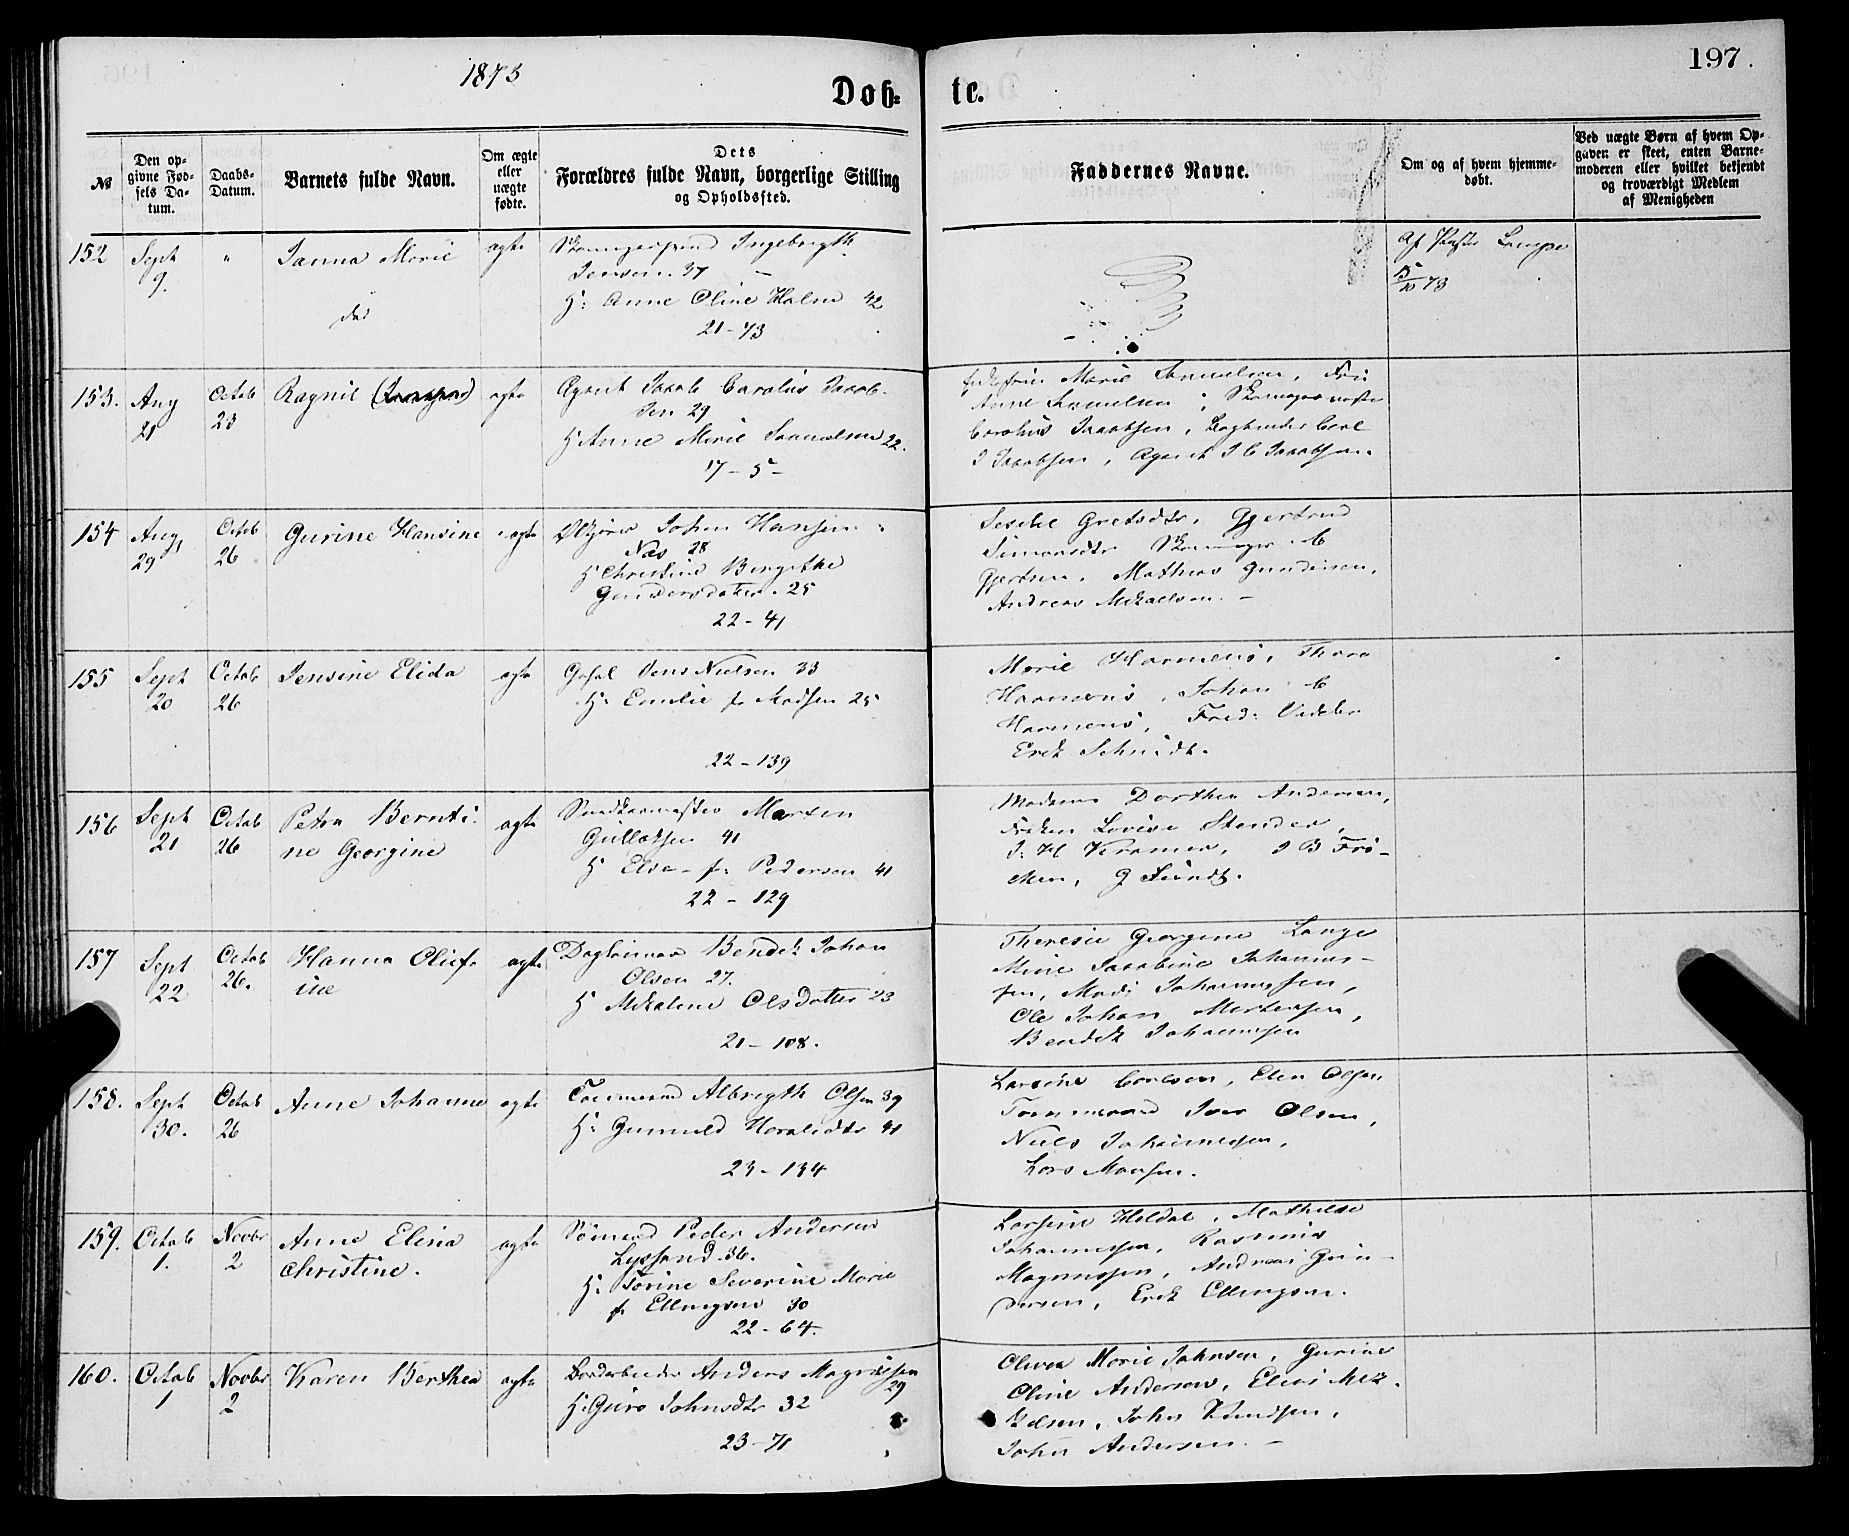 1873
197.
Døb=
te.
№
Den op-
givne Fød-
sels Da-
tum.
Daabs-
Datum.
Barnets fulde Navn.
Om ægte
eller
uægte
fødte.
Dets
Forældres fulde Navn, borgerlige Stilling
og Opholdssted.
Faddernes Navne.
Om og af hvem hjemme-
døbt.
Ved uægte Børn af hvem Op-
gaven er skeet, enten Barne-
moderen eller hvilket bekjendt
og troværdigt Medlem
af Menigheden
152
Sept
9.
"
Janna Marie
død
ægte
Ingebrigth
Jensen. 37
H: Anne Oline Holm 42
21-73
Af Lampe
15/10 73
153.
Aug
21
Octob
23
Ragnil
ægte
Agent Jacob Carolus Jacob-
sen 29
H Anne Marie Samuelsen 22.
17-5-
Marie Samuelsen, Fru
Anne Samuelsen,
Carolus Jacobsen, Bogbinder Carl
J Jacobsen, Agent J C Jacobsen.
154
Aug,
29
Octob
26
Gurine Hansine
ægte
Johan Hansen
Næs 28
H Christine Bergithe
Gundersdatter. 25
22-41
Gjertrud
Simonsdtr
Gjertsen, Mathias Gundersen,
Andreas Mikaelsen. -
155
Sept
20
Octob
26
Jensine Elida
ægte
Jens Nielsen 33
H: Emilie f. Madsen 25
22-139
Marie Harmens, Thora
Harmens, Johan C
Harmens, Fred:
Erik Schmidt.
156
Sept
21
Octob
26
Petra Bernti-
ne Georgine
ægte
Snedkermester Marsen
Gullaksen 41
H Elsa f. Pedersen 41
22-129
Madame Dorthea Andersen,
Frøken Lovise Stender,
J. H Kramer, J B
G Sundt.
157
Sept
22
Octob
26.
Hanna Oluf-
ine
ægte
Bendik Johan
Olsen 27.
H Mikaline Olsdatter 23
21-108.
Theresie Georgine Lange
Mine Jacobine Johannes-
sen, Mads Johannessen,
Ole Johan Mortensen,
Bendik Johannessen
158.
Sept
30.
Octob
26
Anne Johanne
ægte
Tømmermd Albrigth Olsen 39
H: Gunnild Haraldsdtr 41
23-134
Larsine Carlsen, Elen Olsen
Tømmermand Iver Olsen,
Niels Johannessen,
Lars Monsen.
159.
Octob
1.
Novbr
2
Anne Elina
Christine.
ægte
Sømand Peder Andersen
Lyssand. 36.
H: Torine Severine Marie
f. Ellingsen 30
22-64.
Larsine Heldal, Mathilde
Johannessen, Rasmus
Magnussen, Andreas Gun-
dersen, Erik Ellingsen.
160.
Octob
1
Novbr
2
Karen Berthea
ægte
Anders Magnussen
29
H: Guro Johnsdtr 32
23-71
Olivea Marie Johnsen, Gurine
Oline Andersen, Elias Mik-
kelsen, John Knudsen,
John Andersen. -